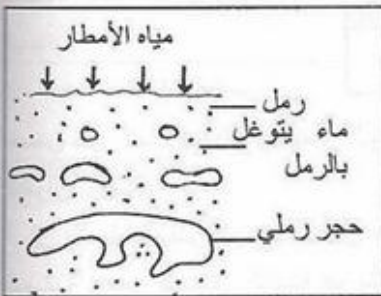 مياه الأمطار
رمل
ماء يتوغل
بالرمل
حجر رملي